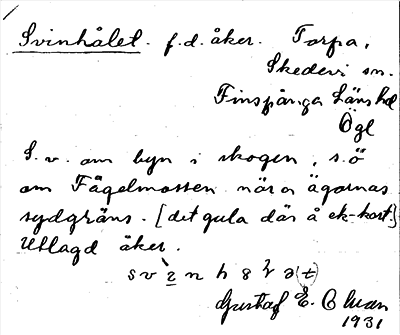 Svinhålet. f.d. åker. Torpa,
Skedevi sn.
Finspånga Läns hd
Ögl
S.v. om byn i skogen, s.ö
om Fågelmossen nära ägornas
sydgräns. [det gula där å ek-kart]
Utlagd åker.
Gustaf E.
1931